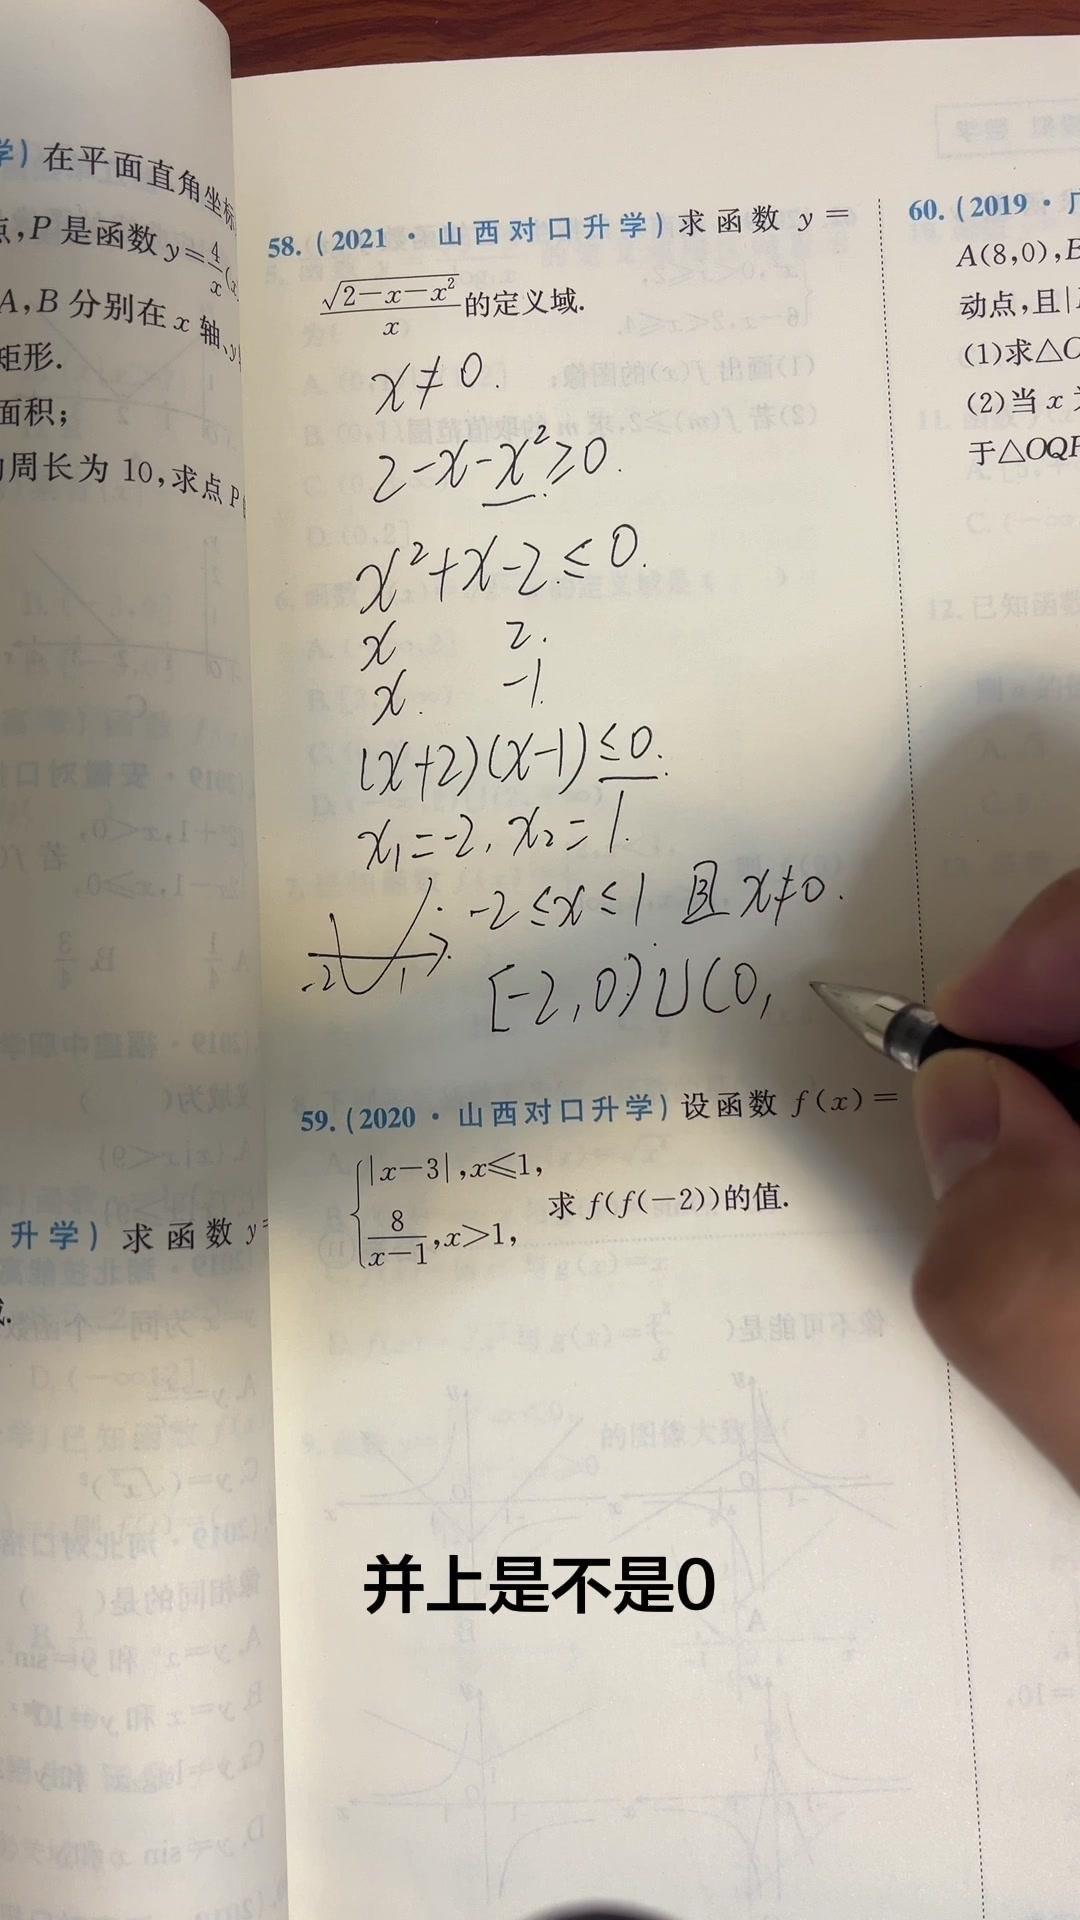 学) 在平面直角坐标
点,P是函数y=4/x(x
A,B分别在x轴、y
矩形.
面积;
周长为10,求点P
升学) 求函数y=
58. (2021·山西对口升学) 求函数 y =
√(2-x-x²)/x 的定义域.
x≠0.
2-x-x²≥0.
x²+x-2≤0.
x 2.
x. -1.
(x+2)(x-1)≤0.
x₁=-2, x₂=1.
-2≤x≤1 且 x≠0.
-2 1
[-2,0)∪(0,
59. (2020·山西对口升学) 设函数 f(x)=
{|x-3|,x≤1,
8/(x-1),x>1,
求 f(f(-2))的值.
60. (2019·广
A(8,0),B
动点,且|
(1)求△O
(2)当x
于△OQP
并上是不是0